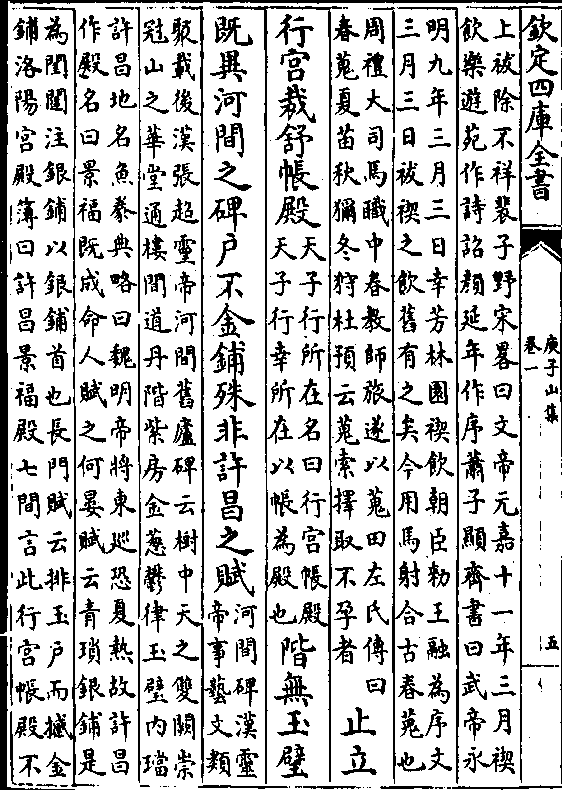 欽定四庫全書
庾子山集
卷一
五
上祓除不祥裴子野宋畧曰文帝元嘉十一年三月禊
飲樂遊苑作詩詔顔延年作序蕭子顯齊書曰武帝永
明九年三月三日幸芳林園禊飲朝臣勑王融為序文
三月三日祓禊之飲舊有之矣今用馬射合古春蒐也
周禮大司馬職中春教師旅遂以蒐田左氏傳曰
春蒐夏苗秋獮冬狩杜預云蒐索擇取不孕者
止立
行宫裁舒帳殿
天子行所在名曰行宫帳殿
天子行幸所在以帳為殿也
階無玉璧
既異河間之碑户不金鋪殊非許昌之賦
河間碑漢靈
帝事藝文類
聚載後漢張超靈帝河間舊廬碑云樹中天之雙闕崇
冠山之華堂通樓閒道丹階紫房金蔥鬱律玉璧内璫
許昌地名魚豢典略曰魏明帝將東巡恐夏熱故許昌
作殿名曰景福既成命人賦之何晏賦云青瑣銀鋪是
為閨闥注銀鋪以銀鋪首也長門賦云排玉户而撼金
鋪洛陽宫殿簿曰許昌景福殿七間言此行宫帳殿不